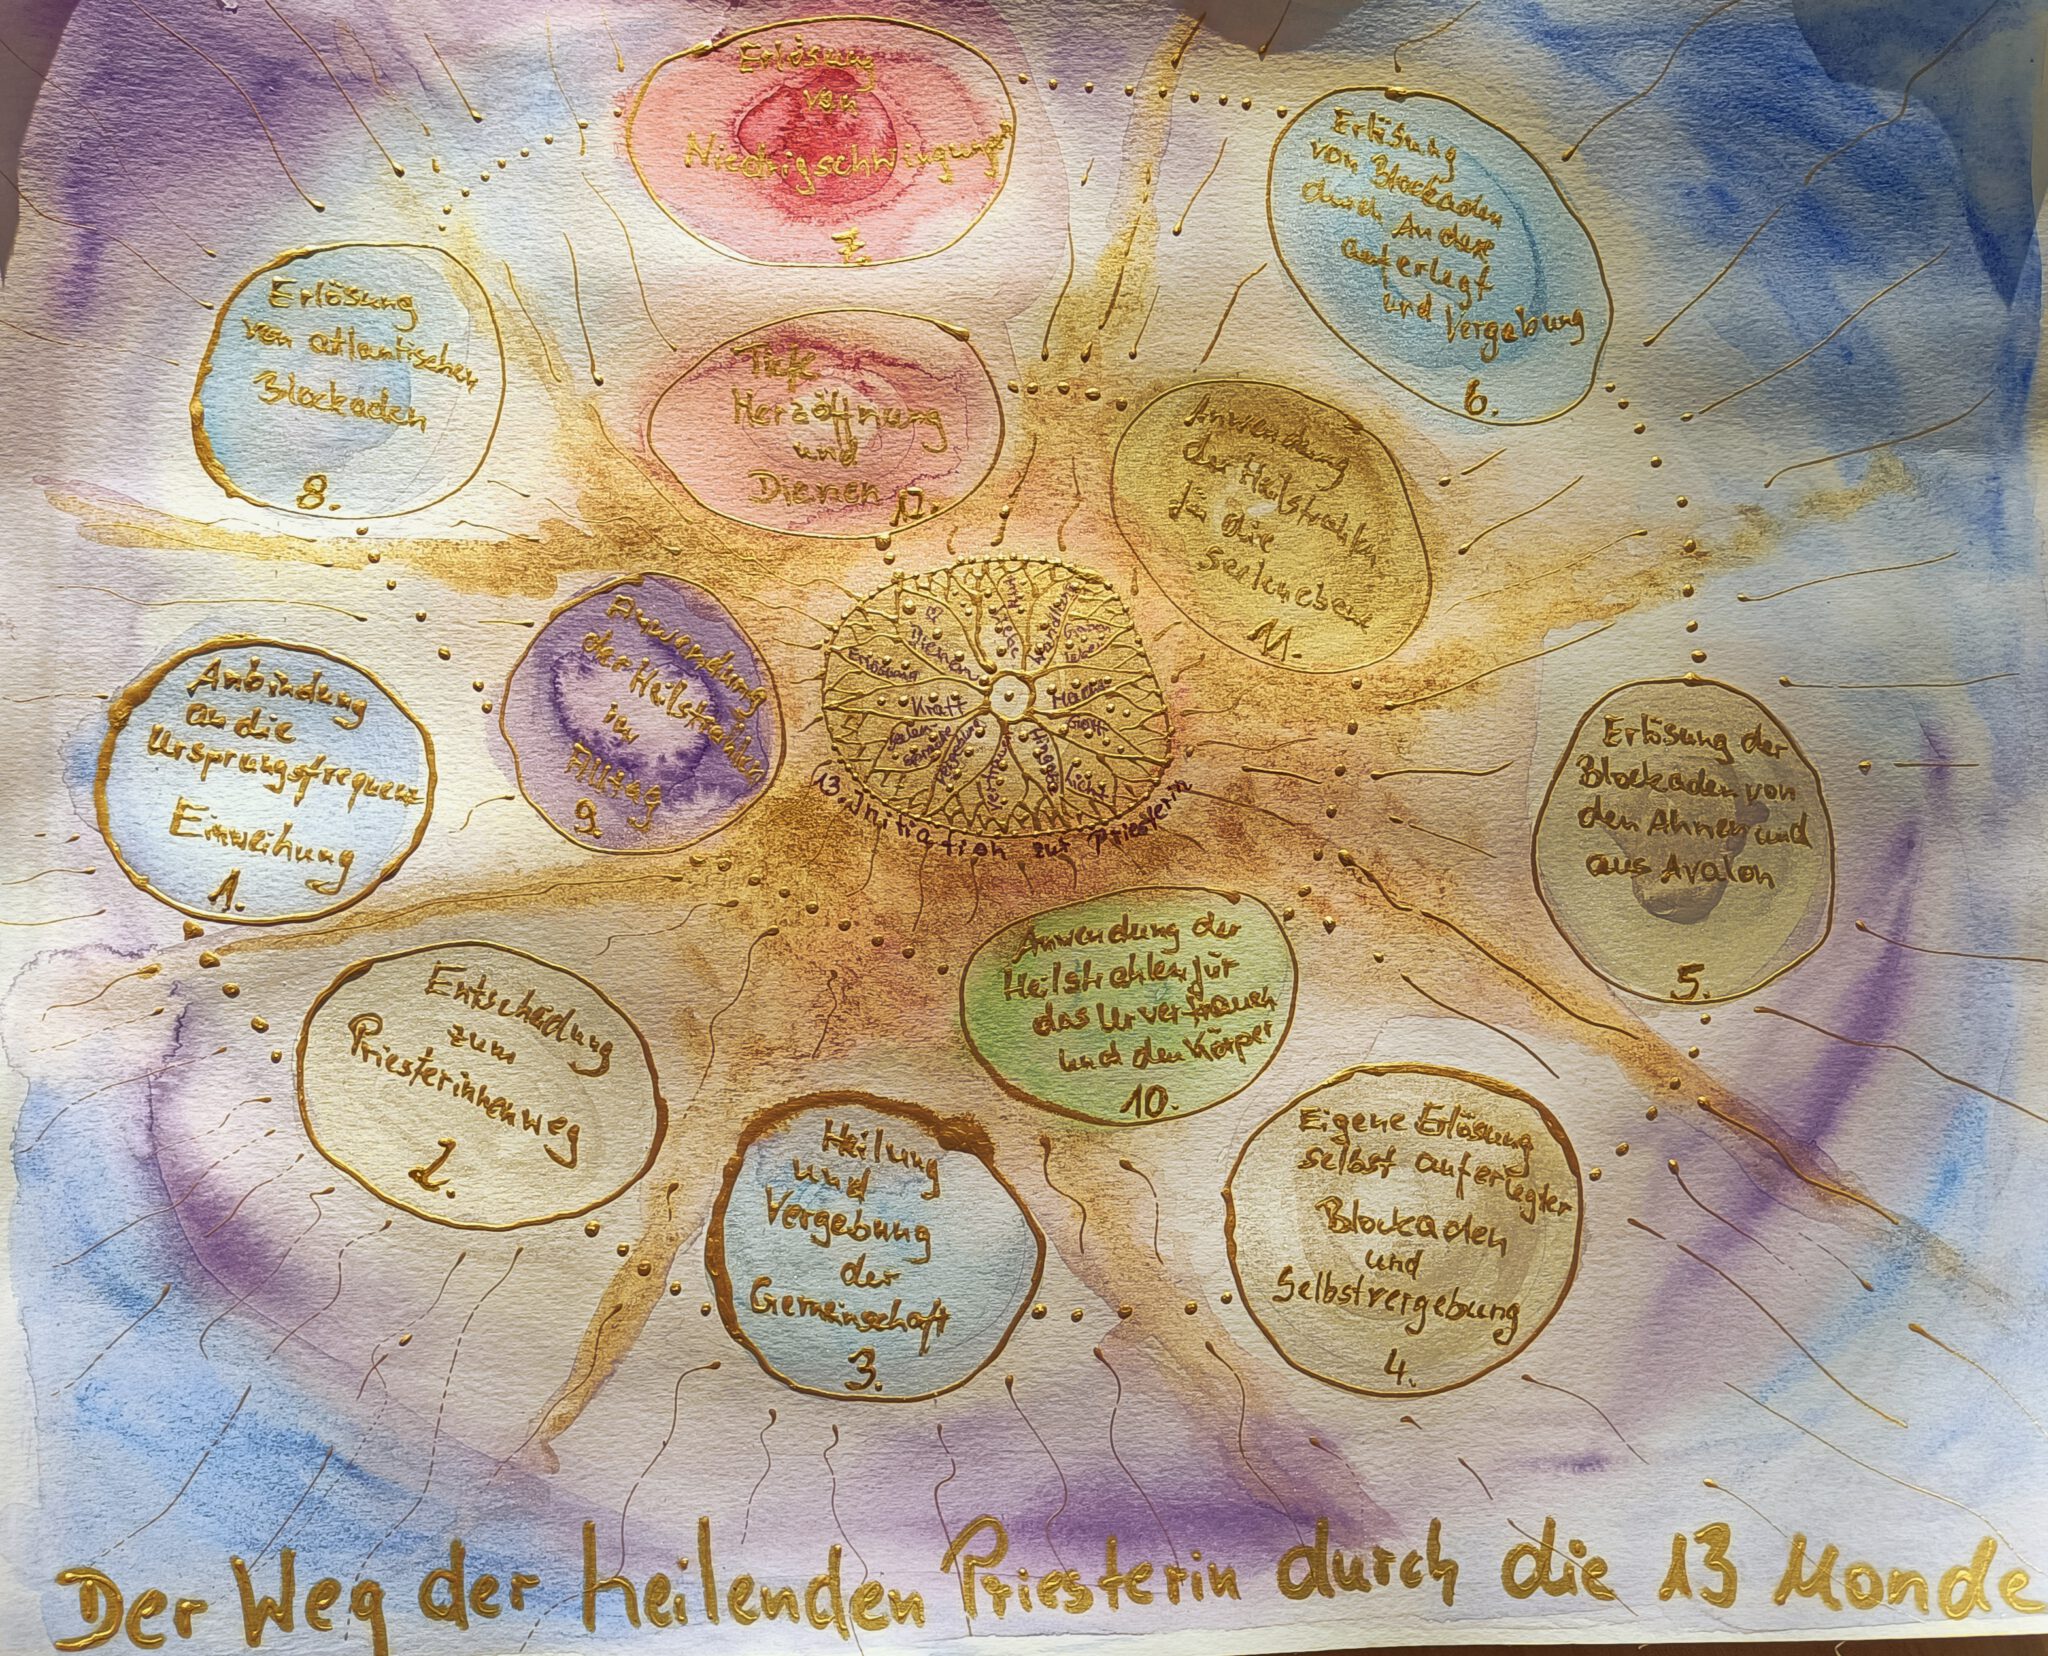 Anbindung
an die
Ursprungsfrequenz
Einweihung
1.
Entscheidung
zum
Priesterinnenweg
2.
Heilung
und
Vergebung
der
Gemeinschaft
3.
Eigene Erlösung
selbst auferlegter
Blockaden
und
Selbstvergebung
4.
Erlösung der
Blockaden von
den Ahnen und
aus Avalon
5.
Erlösung
von Blockaden
durch Andere
auferlegt
und Vergebung
6.
Erlösung
von
Niedrigschwingungen
7.
Erlösung
von atlantischen
Blockaden
8.
Anwendung
der Heilstrahlen
im
Alltag
9.
Anwendung der
Heilstrahlen für
das Urvertrauen
und den Körper
10.
Anwendung
der Heilstrahlen
in die
Seelenebene
11.
Tiefe
Herzöffnung
und
Dienen
12.
Liebe
Wandlung
Leben
Gott
Licht
Hingabe
Vertrauen
Vergebung
Kraft
Erlösung
Dienen
13. Initiation zur Priesterin
Der Weg der heilenden Priesterin durch die 13 Monde